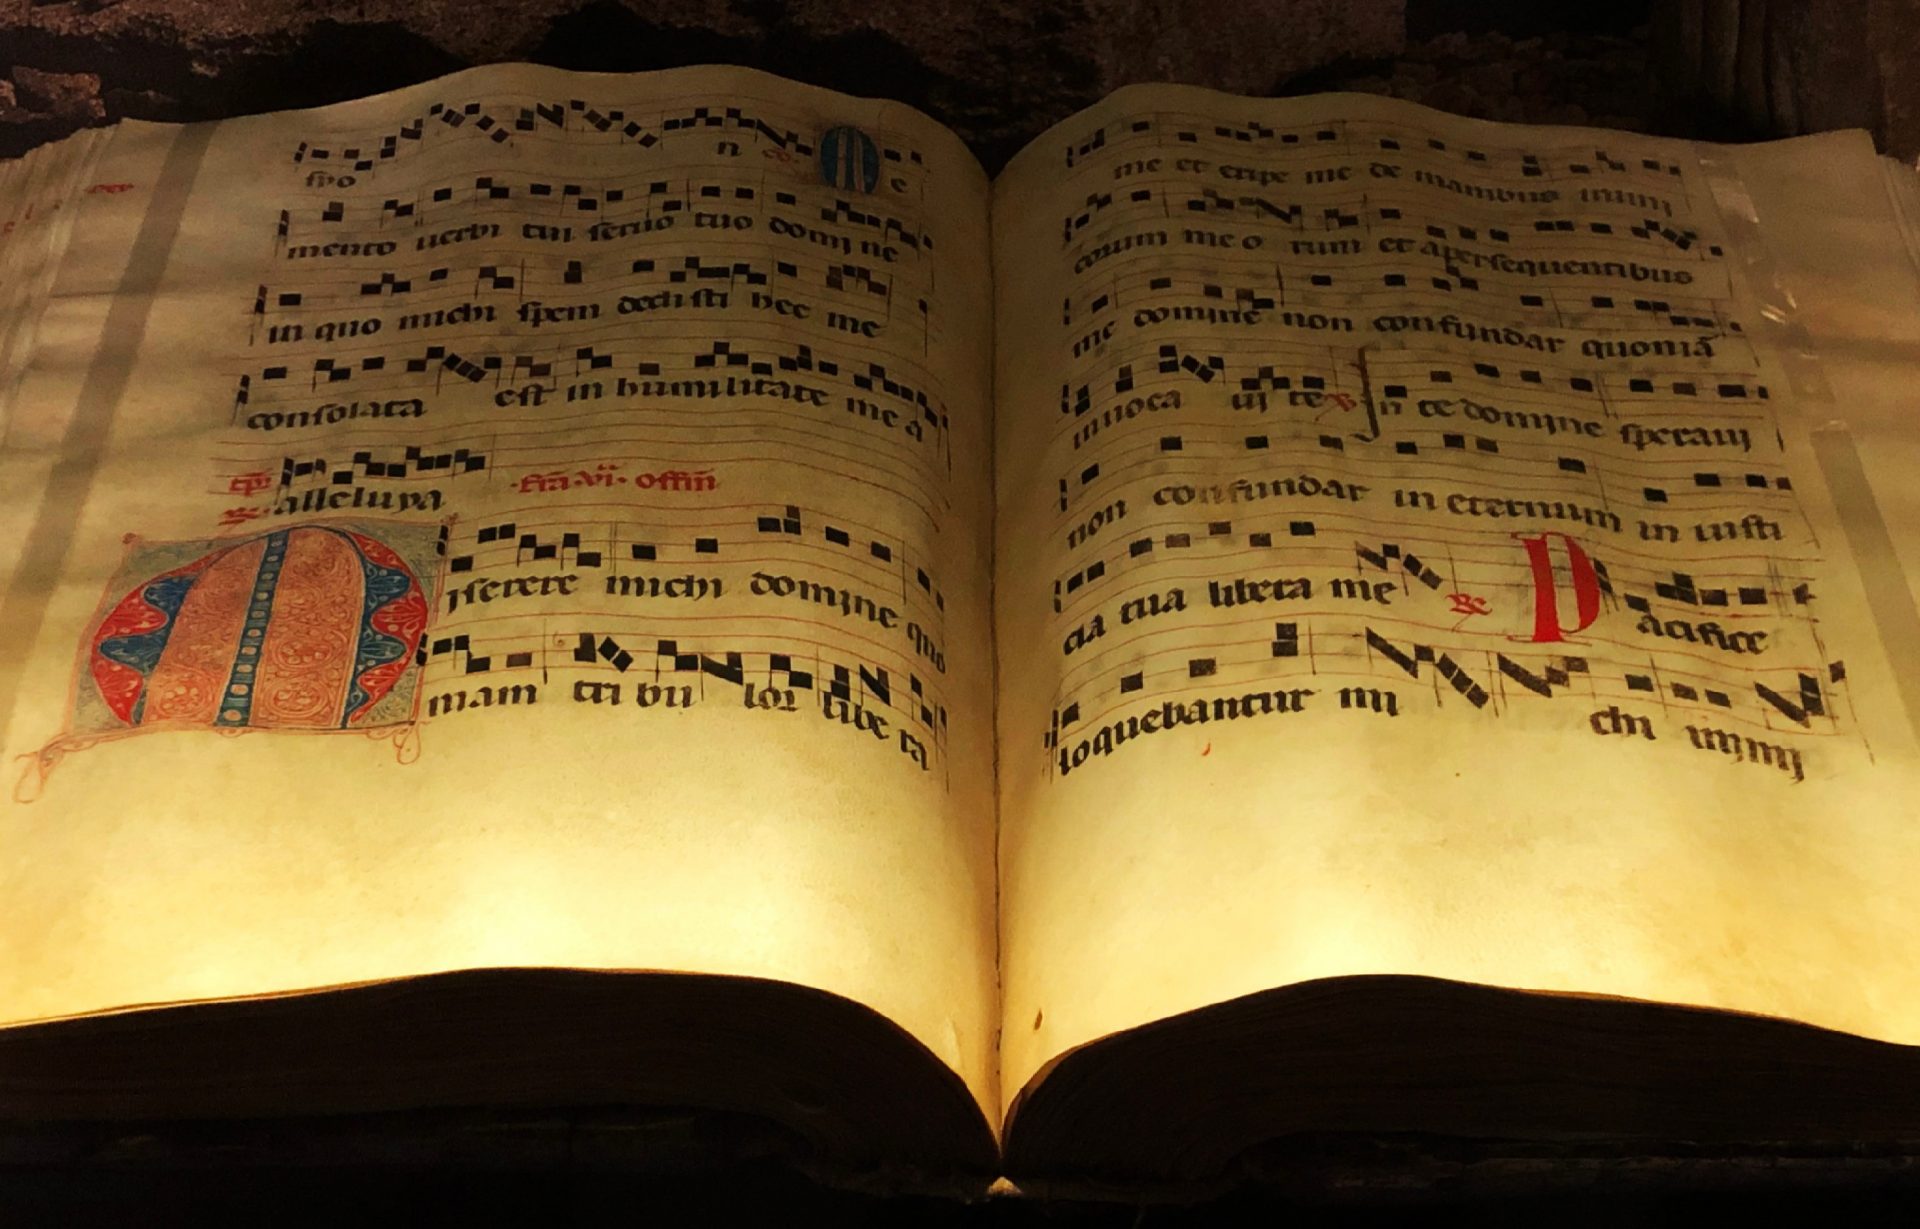 spo n co. M e
mento verbi tui servo tuo domine
in quo michi spem dedisti hec me
consolata est in humilitate mea
tp̄r alleluya ·fr̄a·vi· offm̄
℟. Miserere michi domine quo
niam tribulor libera
me et eripe me de manibus inimi
corum meorum et a persequentibus
me domine non confundar quoniā
invocavi te ℣ In te domine speravi
non confundar in eternum in iusti
cia tua libera me ℟ Pacifice
loquebantur michi inimi